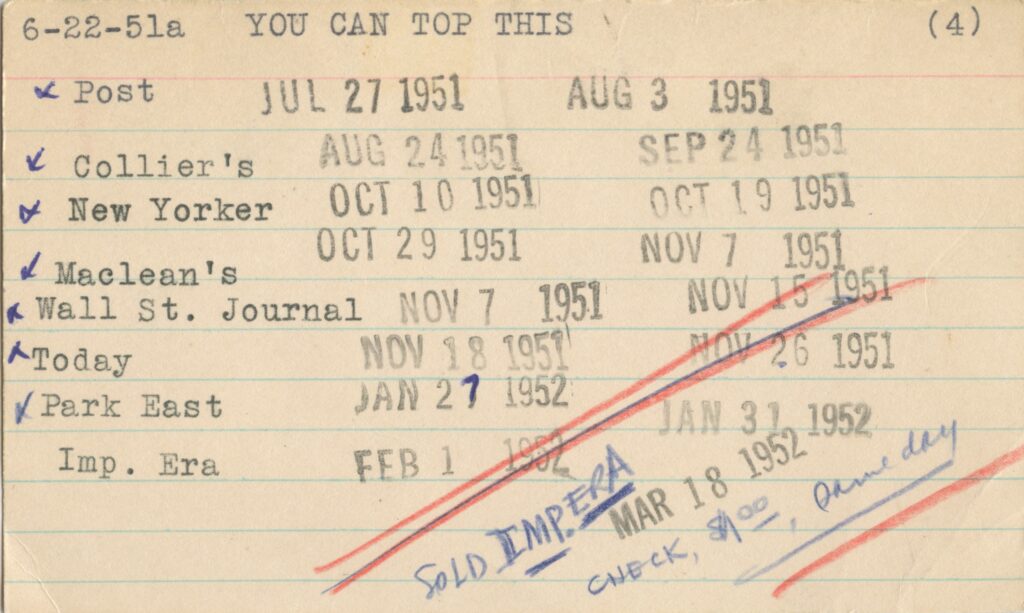 6-22-51a YOU CAN TOP THIS (4)
Post JUL 27 1951 AUG 3 1951
Collier's AUG 24 1951 SEP 24 1951
New Yorker OCT 10 1951 OCT 19 1951
Maclean's OCT 29 1951 NOV 7 1951
Wall St. Journal NOV 7 1951 NOV 15 1951
Today NOV 18 1951 NOV 26 1951
Park East JAN 27 1952 JAN 31 1952
Imp. Era FEB 1 1952 MAR 18 1952
SOLD IMP. ERA
CHECK, same day